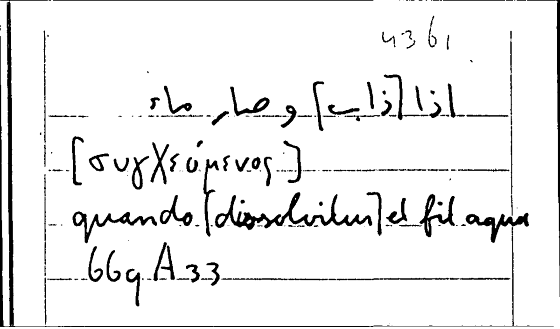 4361
اذا [ذاب] و صار ماء
[συγχεόμενος]
quando [dissolvitur] et fit aqua
669 A 33